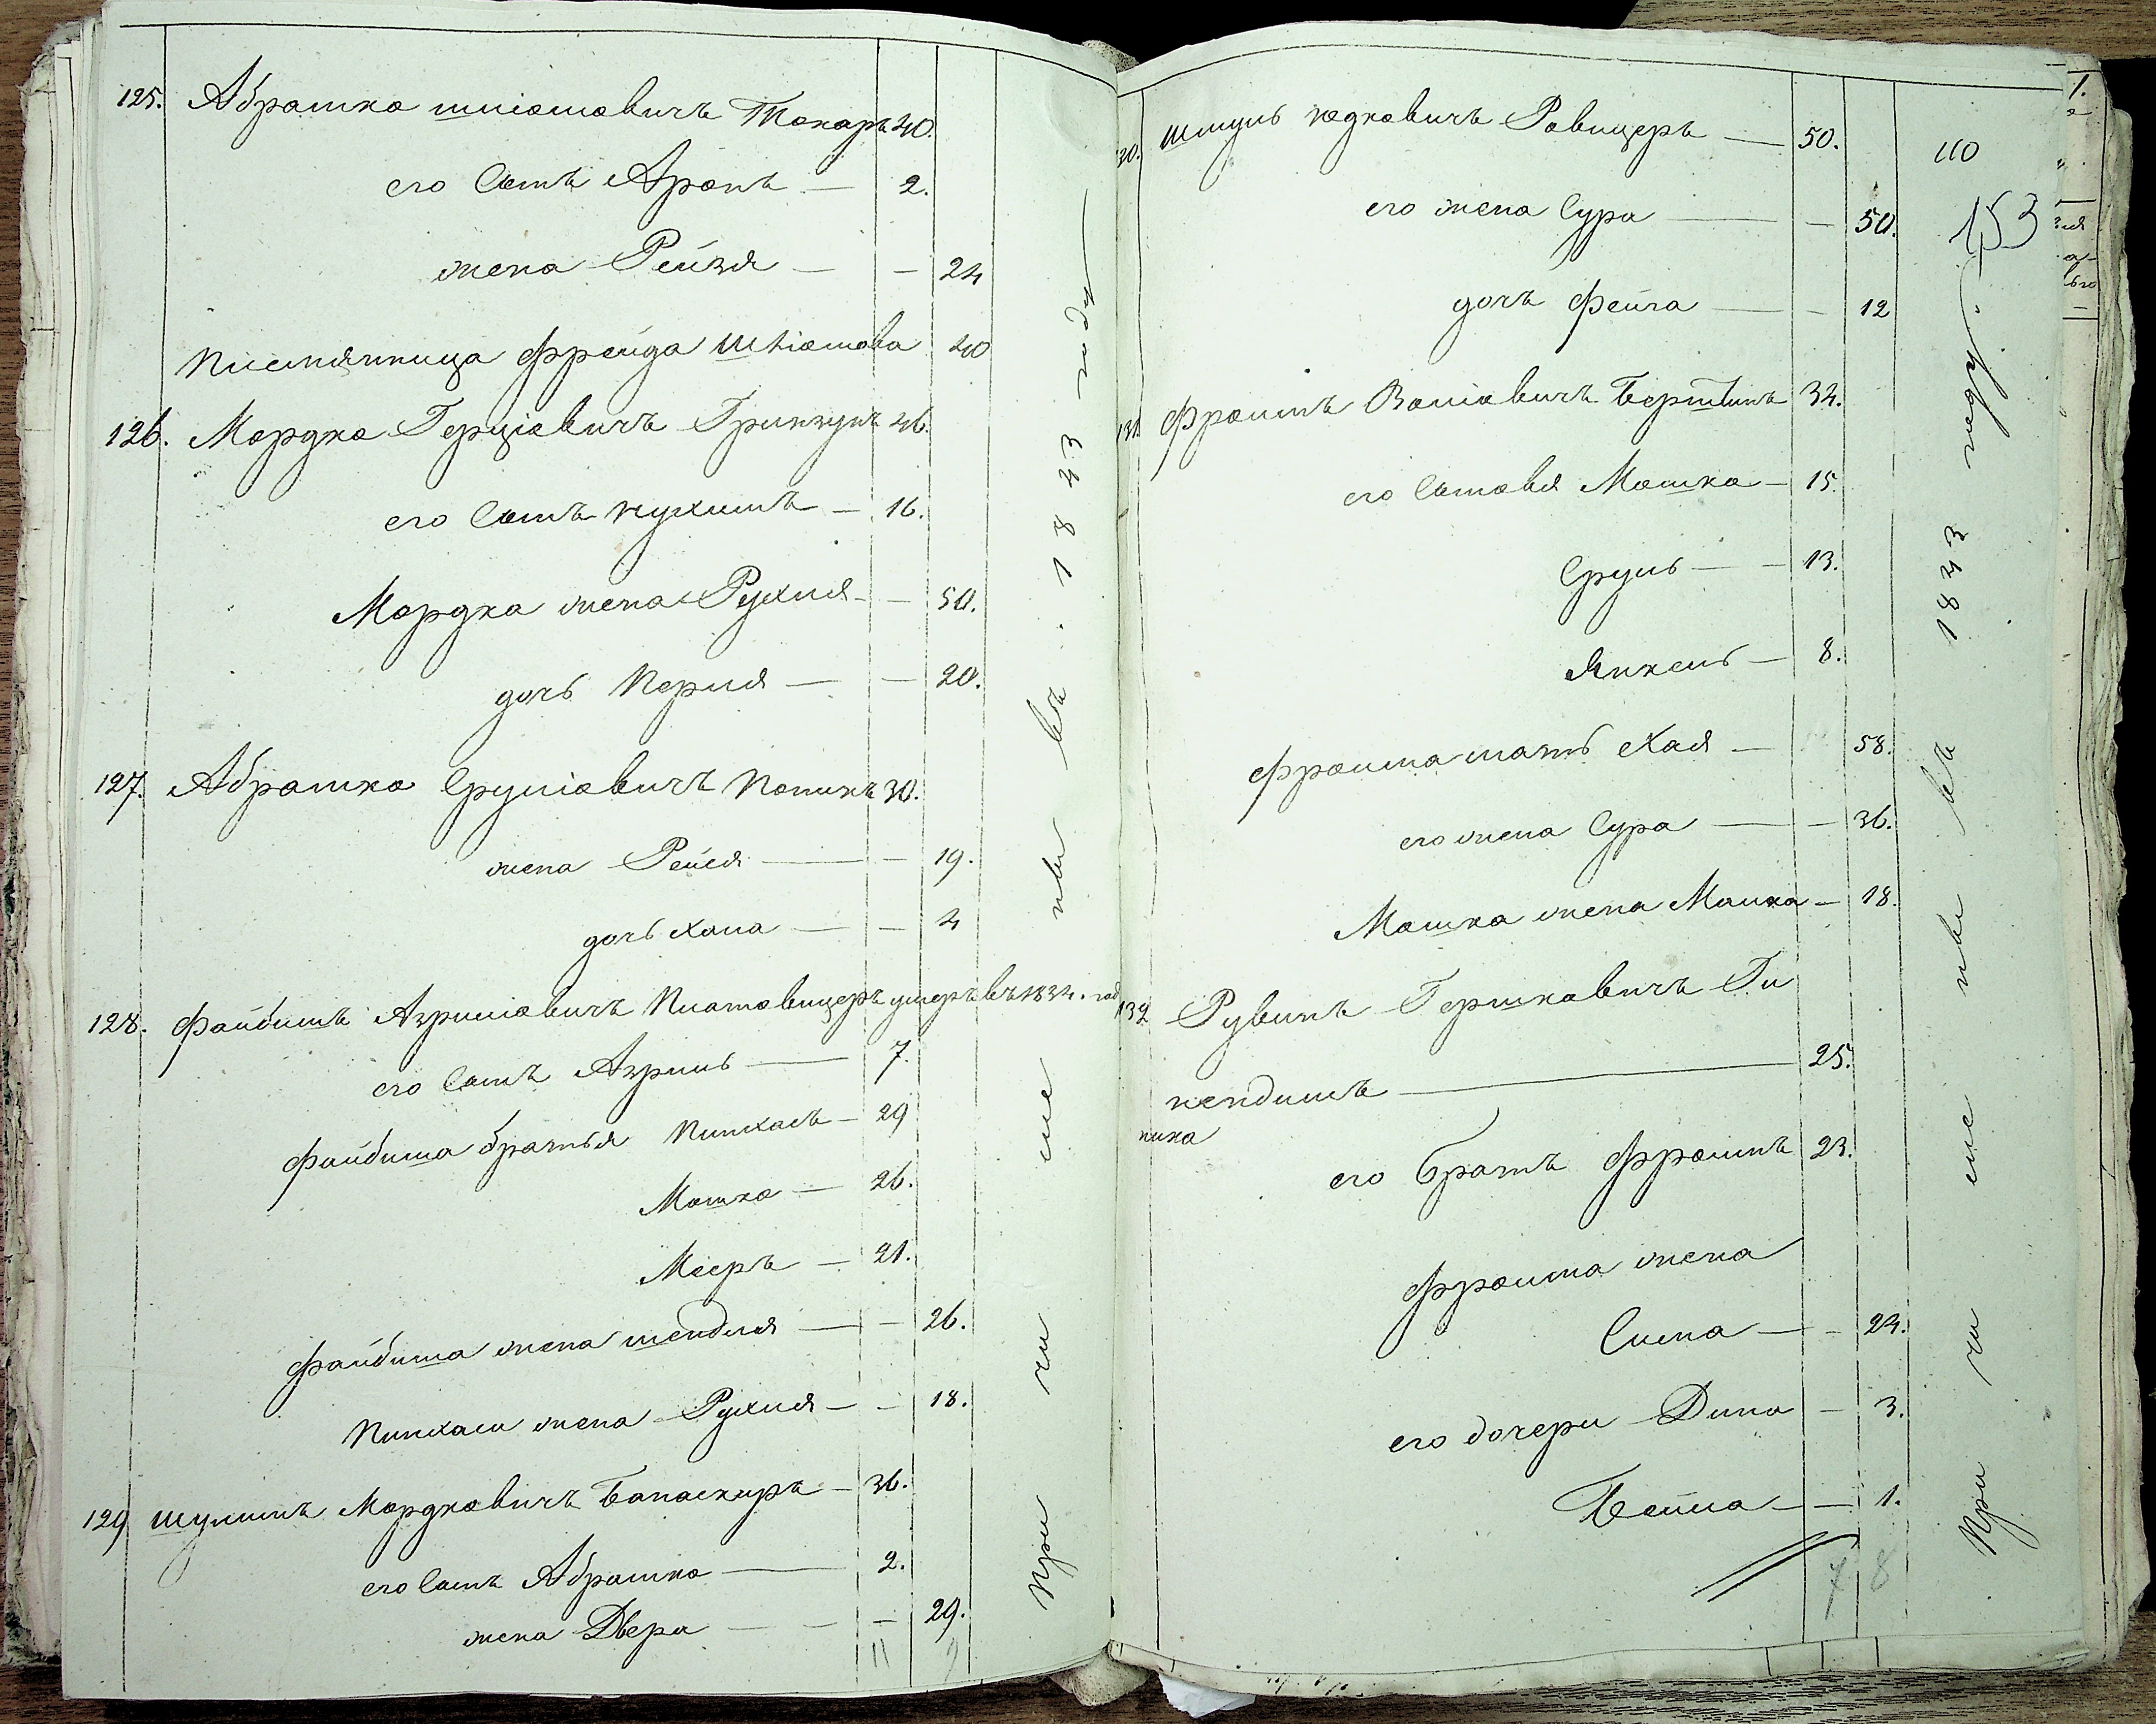 125. Абрамко шліомовичъ Токаръ 40.
его сынъ Аронъ — 2.
жена Рейзя — — 24
Племянница Фрейда Шліомова 40
126. Мордко Герціовичъ Гринзунъ 46.
его сынъ нухимъ — 16.
Мордка жена Рухля — — 50.
дочь Перля — — 20.
127. Абрамко Сруліовичъ Попикъ 30.
жена Рейся — — 19.
дочь хана — — 4
128. Файбишъ Азриліовичъ умеръ въ 1834. год
его сынъ Азриль — 7.
Файбиша братья Пинхасъ — 29
Мошко — 26.
Мееръ — 21.
Файбиша жена шендля — — 26.
Пинхаса жена Рухля — — 18.
129 шулимъ Мордковичъ Банаскиръ — 36.
его сынъ Абрамко — 2.
жена Двера — — 29.
11 9
При чи сле ны въ . 1843 году
130. шмуль юдковичъ Ровицеръ — 50.
его жена Сура — — 50.
дочь фейга — — 12
131. Фроимъ Воліовичъ Берштинъ 34.
его сыновья Мошко — 15.
Сруль — 13.
Янкель — 8.
Фроима мать Хая — 58.
его жена Сура — — 36.
Мошка жена Малка — 18.
132 Рувинъ Гершковичъ Ги
нендинъ — 25.
ника
его братъ Фроимъ 23.
Фроима жена
Сима — — 24.
его дочери Дина — 3.
Бейла — — 1.
7 8
110
153
При чи сле ны въ 1843 году.